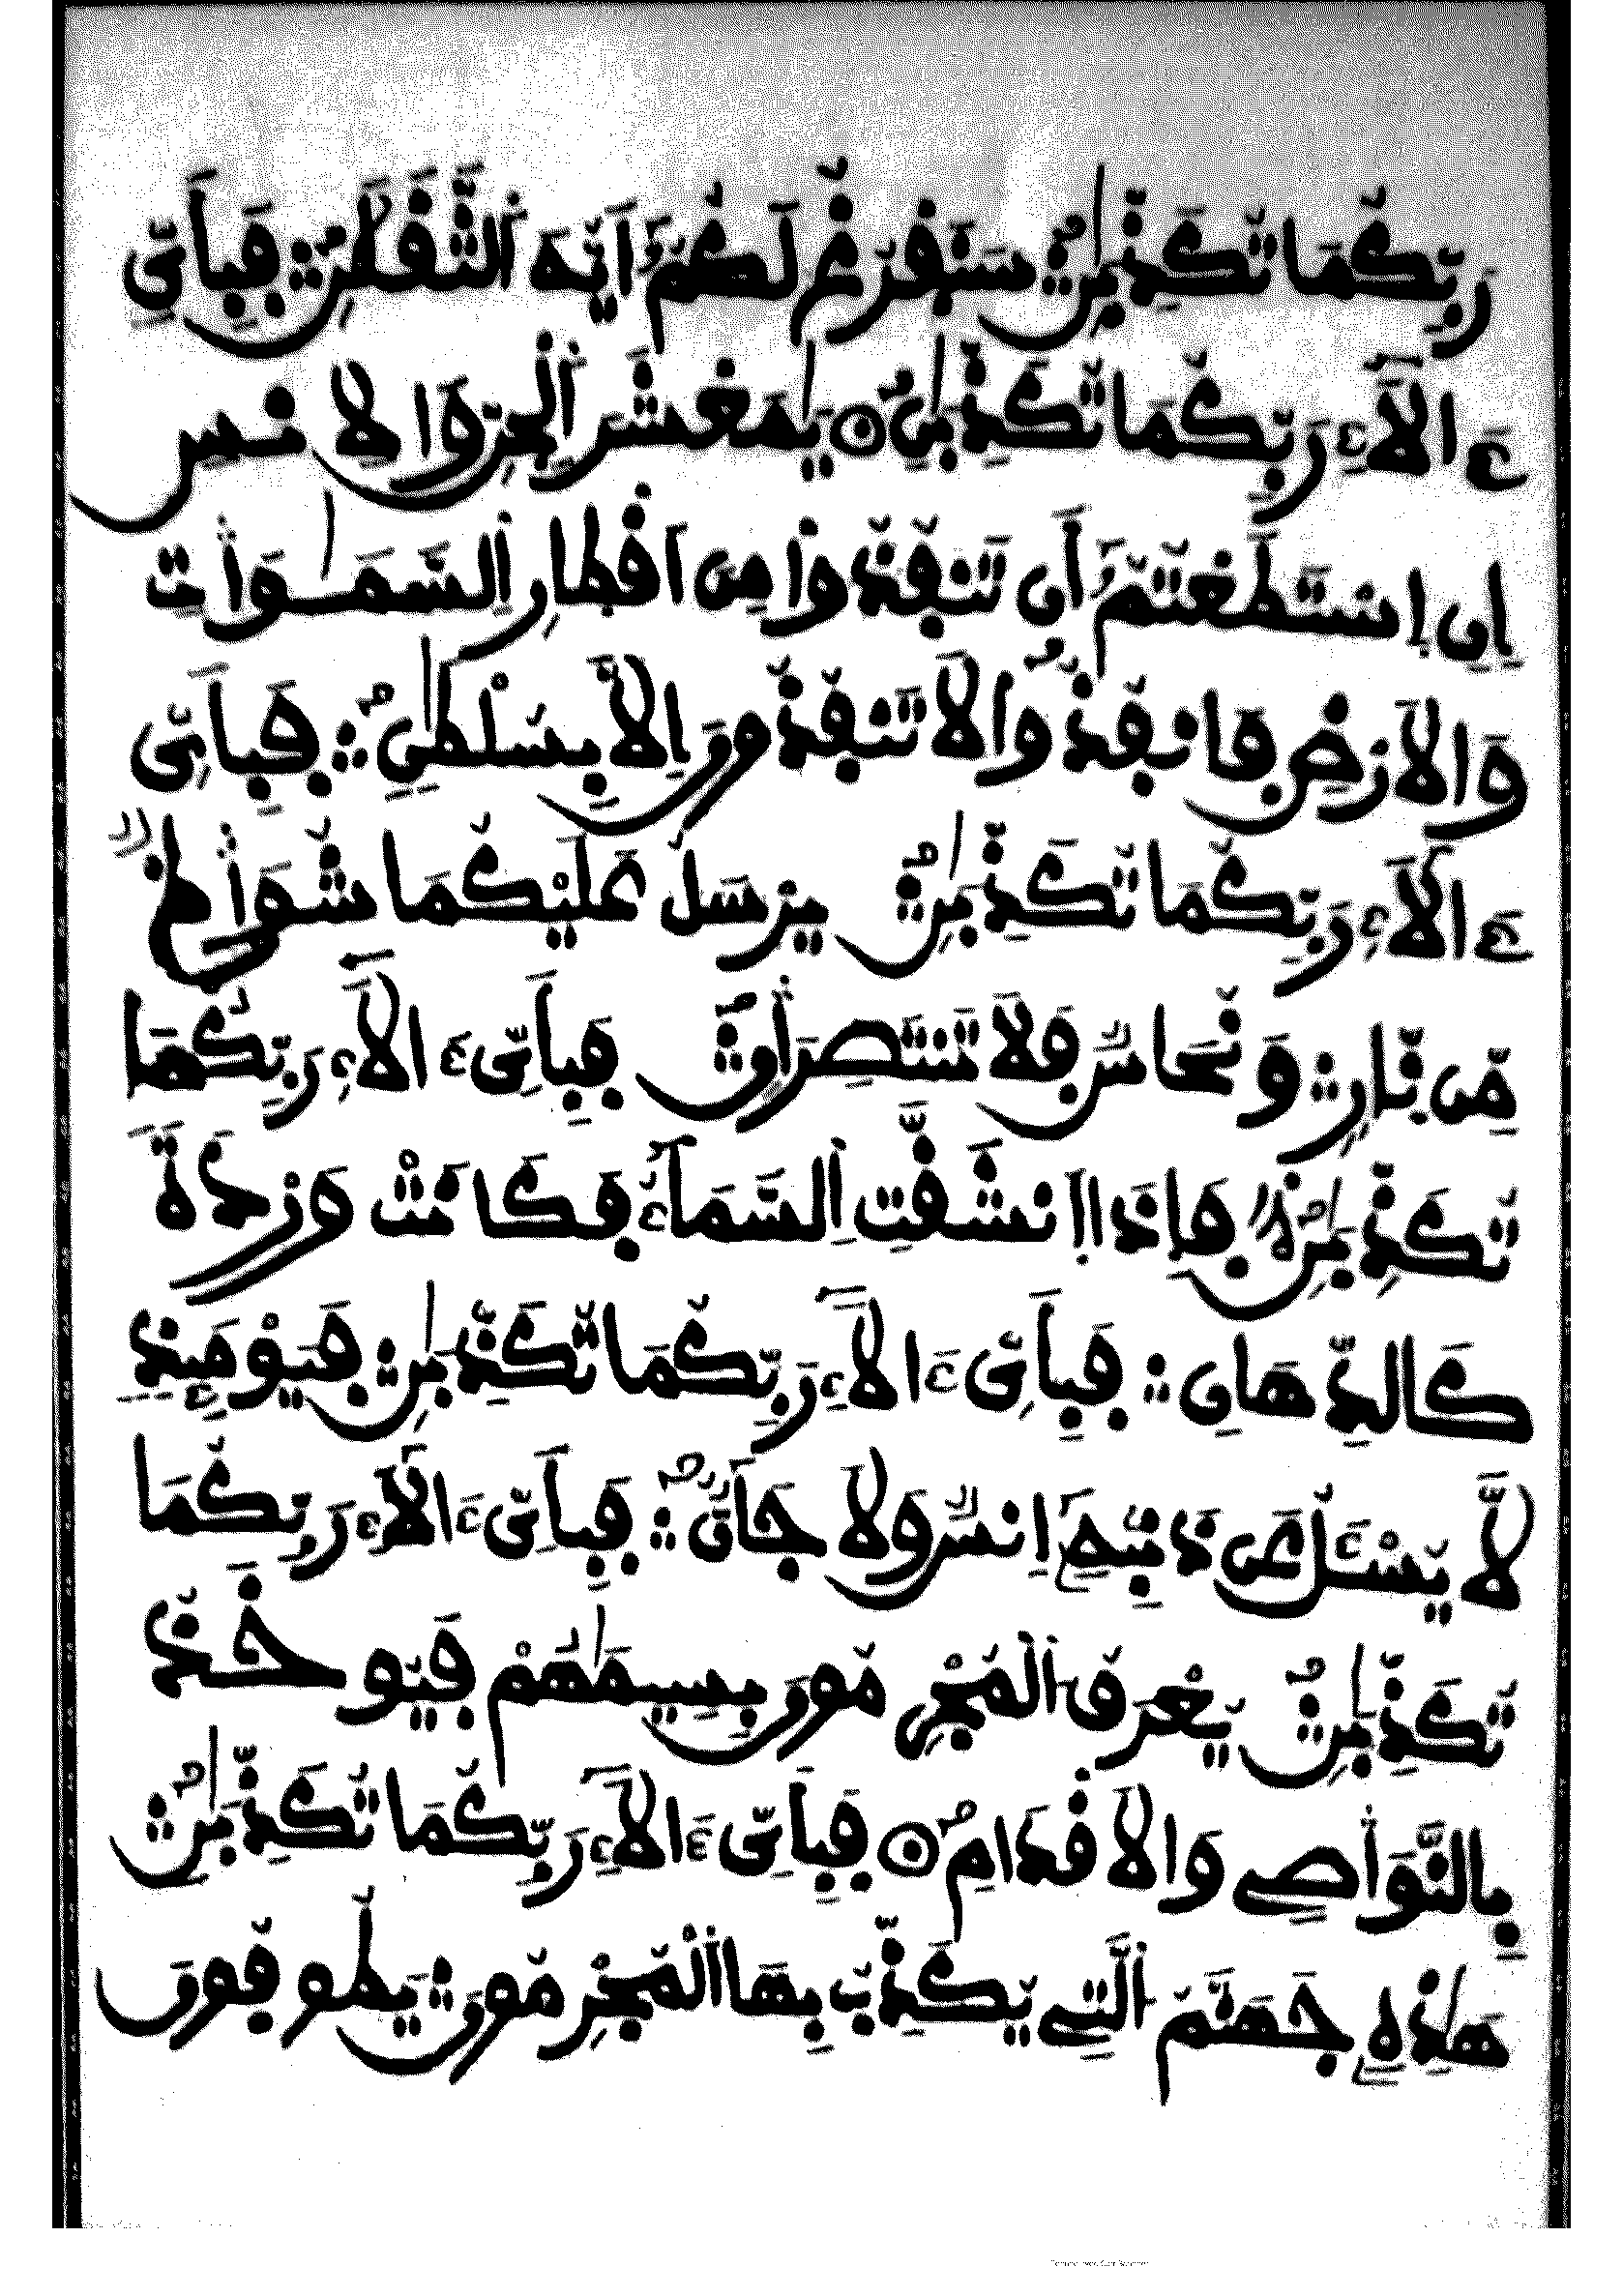 رَبِّكُمَا تُكَذِّبَٰنِ سَنَفْرُغُ لَكُمُ أَيُّهَ ٱلثَّقَلَٰنِ فَبِأَيِّ
ءَالَآءِ رَبِّكُمَا تُكَذِّبَٰنِ يَٰمَعْشَرَ ٱلْجِنِّ وَالْإِنسِ
إِنِ ٱسْتَطَعْتُمُ أَن تَنفُذُوا۟ مِنَ اَقْطَارِ ٱلسَّمَٰوَٰتِ
وَالْأَرْضِ فَانفُذُوا۟ لَا تَنفُذُونَ إِلَّا بِسُلْطَٰنٍ فَبِأَيِّ
ءَالَآءِ رَبِّكُمَا تُكَذِّبَٰنِ يُرْسَلُ عَلَيْكُمَا شُوَاظٌ
مِّن نَّارٍ وَنُحَاسٌ فَلَا تَنتَصِرَانِ فَبِأَيِّ ءَالَآءِ رَبِّكُمَا
تُكَذِّبَٰنِ فَإِذَا ٱنشَقَّتِ ٱلسَّمَآءُ فَكَانَتْ وَرْدَةً
كَالدِّهَانِ فَبِأَيِّ ءَالَآءِ رَبِّكُمَا تُكَذِّبَٰنِ فَيَوْمَئِذٍ
لَّا يُسْـَٔلُ عَن ذَنۢبِهِۦ إِنسٌ وَلَا جَآنٌّ فَبِأَيِّ ءَالَآءِ رَبِّكُمَا
تُكَذِّبَٰنِ يُعْرَفُ ٱلْمُجْرِمُونَ بِسِيمَٰهُمْ فَيُوخَذُ
بِالنَّوَاصِي وَالْأَقْدَامِ فَبِأَيِّ ءَالَآءِ رَبِّكُمَا تُكَذِّبَٰنِ
هَٰذِهِۦ جَهَنَّمُ ٱلَّتِي يُكَذِّبُ بِهَا ٱلْمُجْرِمُونَ يَطُوفُونَ